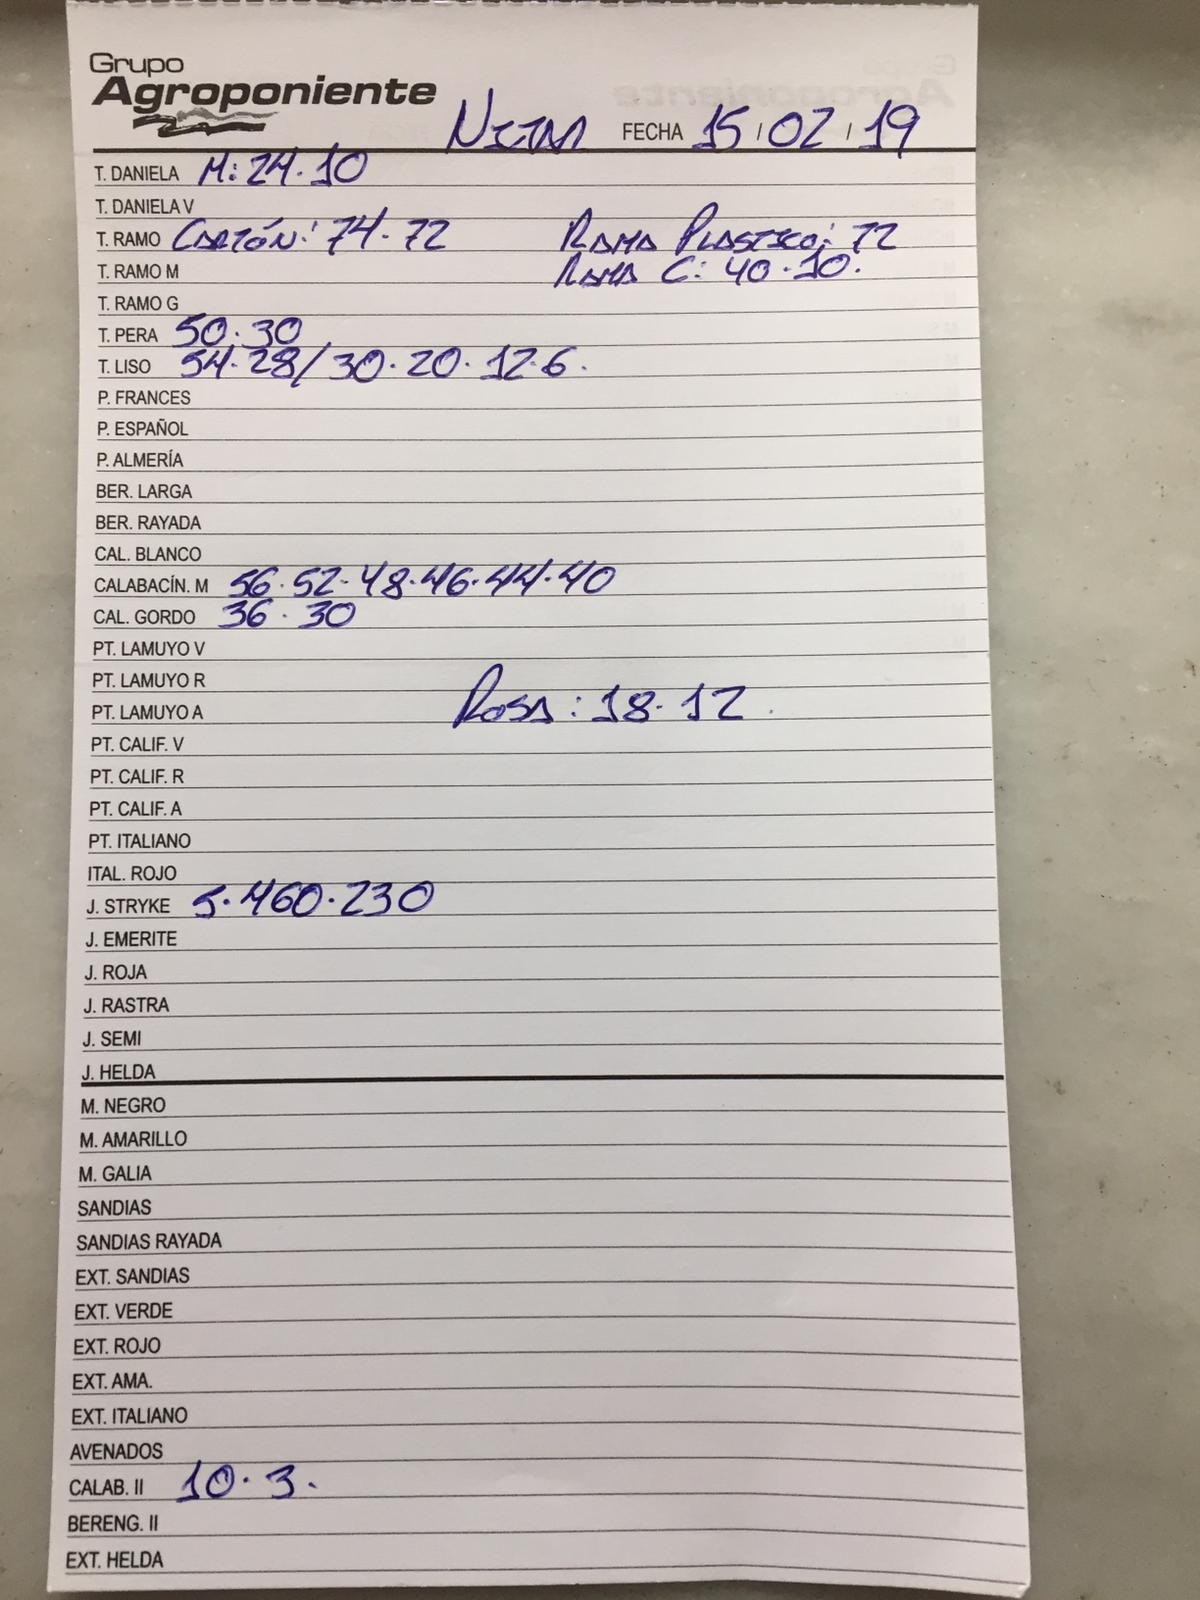 Grupo
Agroponiente
Níjar FECHA 15/02/19
T. DANIELA M: 24.10
T. DANIELA V
T. RAMO CARTÓN: 74.72 RAMA PLASTICO: 72
T. RAMO M RAMA C: 40.10.
T. RAMO G
T. PERA 50.30
T. LISO 54.28/30.20.12.6.
P. FRANCES
P. ESPAÑOL
P. ALMERÍA
BER. LARGA
BER. RAYADA
CAL. BLANCO
CALABACÍN. M 56.52-48.46.44.40
CAL. GORDO 36.30
PT. LAMUYO V
PT. LAMUYO R
PT. LAMUYO A ROSA: 18.12.
PT. CALIF. V
PT. CALIF. R
PT. CALIF. A
PT. ITALIANO
ITAL. ROJO
J. STRYKE 5.460.230
J. EMERITE
J. ROJA
J. RASTRA
J. SEMI
J. HELDA
M. NEGRO
M. AMARILLO
M. GALIA
SANDIAS
SANDIAS RAYADA
EXT. SANDIAS
EXT. VERDE
EXT. ROJO
EXT. AMA.
EXT. ITALIANO
AVENADOS
CALAB. II 10.3.
BERENG. II
EXT. HELDA